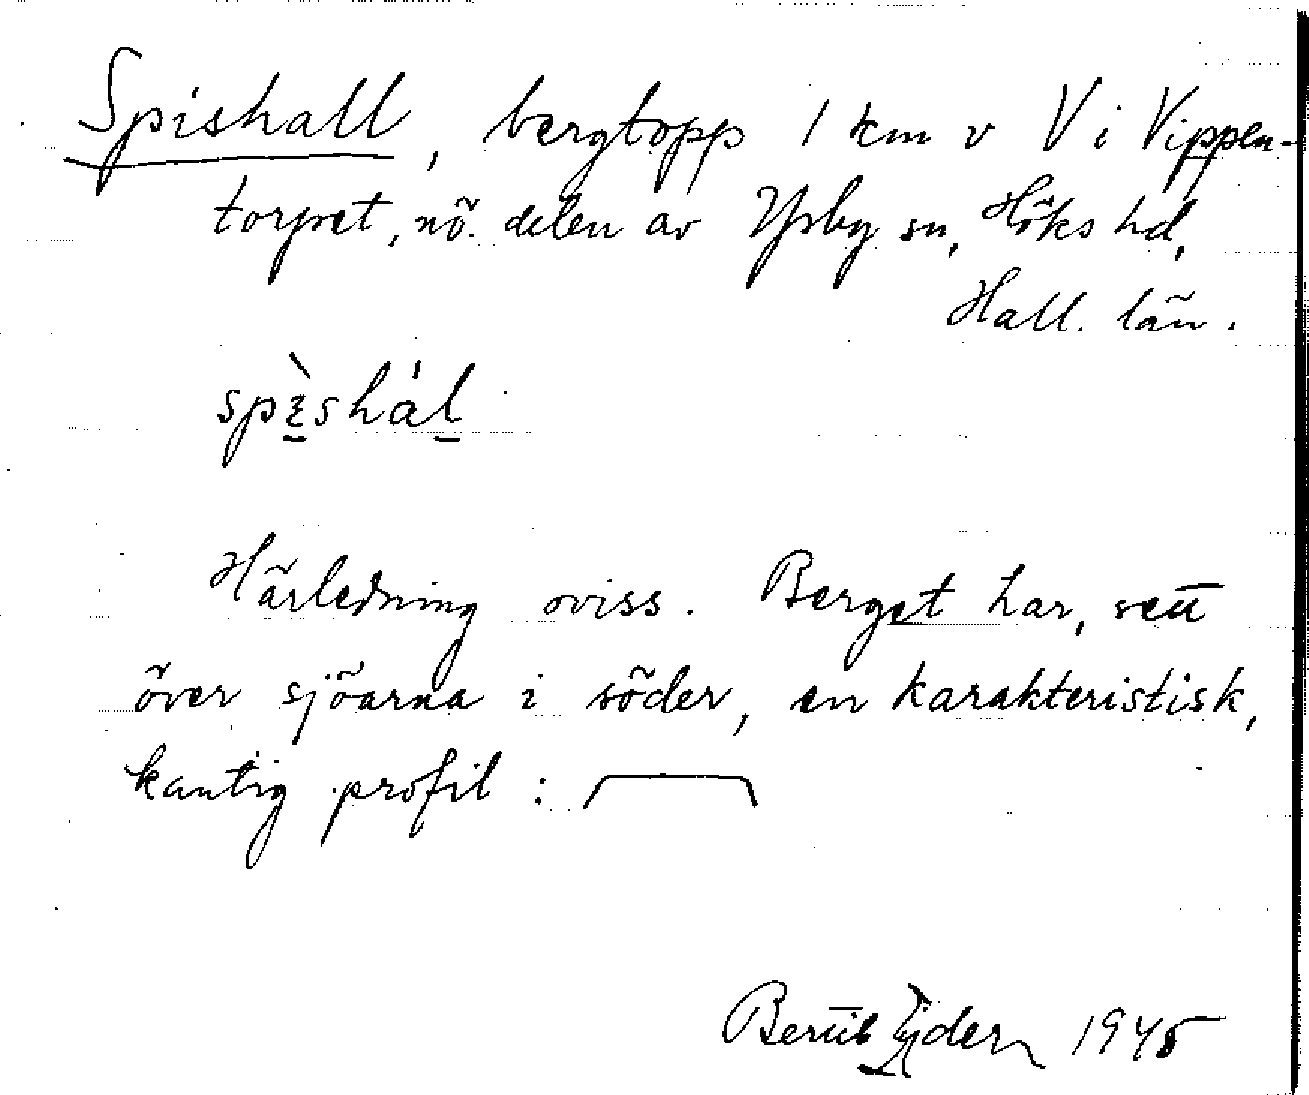 Spishall, bergtopp 1 km v V i Vippen-
torpet, nö. delen av Ysby sn, Höks hd,
Hall. län.
spèshál
Härledning oviss. Berget har, sett
över sjöarna i söder, en karakteristisk,
kantig profil :
Bertil Ejder 1945